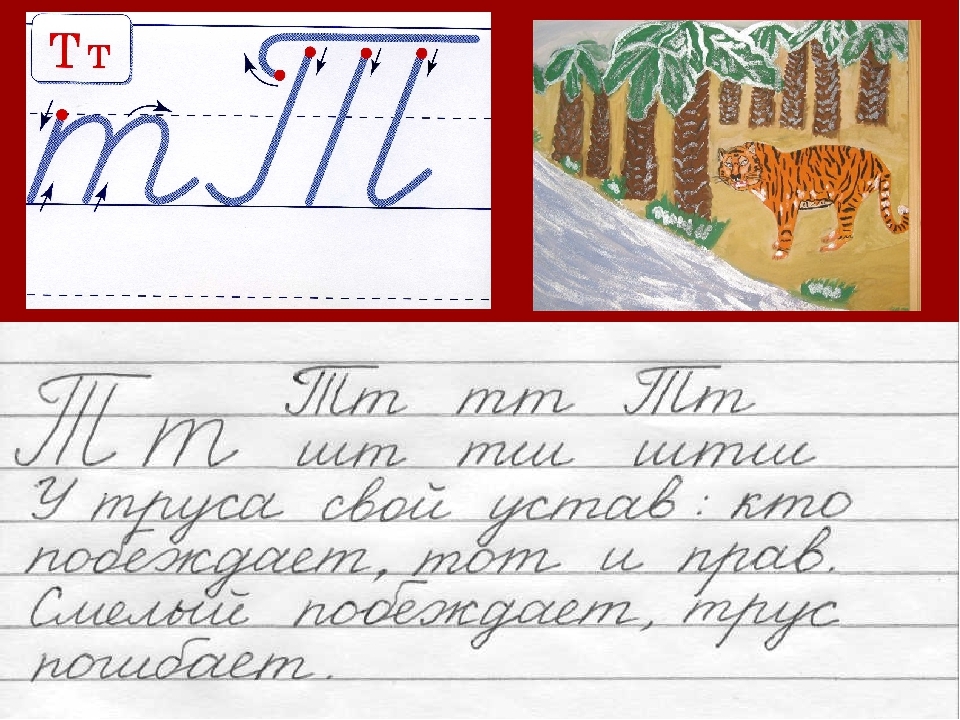 Т т
т Т
Т т Тт тт Тт
шт тш штш
У труса свой устав: кто
побеждает, тот и прав.
Смелый побеждает, трус
погибает.